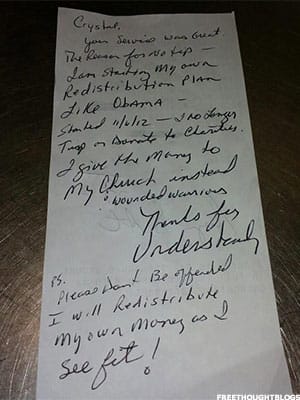 Crystal,
your Service was Great.
The Reason for No tip –
I am Starting My own
Redistribution Plan
Like Obama –
Started 11/6/12 – I no longer
Tip or Donate to Charities.
I give the Money to
My Church instead
"wounded warriors
Thanks for
Understanding
PS.
Please Don't Be offended
I will Redistribute
My own Money as I
See fit!
FREETHOUGHTBLOGS